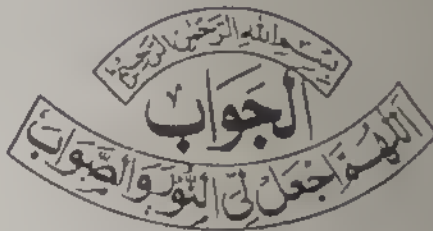 بِسْمِ اللهِ الرَّحْمٰنِ الرَّحِيْمِ
الجَوَابُ
اَللّٰهُمَّ اجْعَلْ لِيَ النُّوْرَ وَالصَّوَابَ